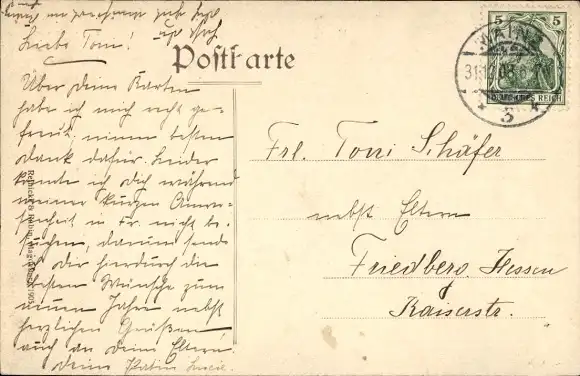 Liebe Toni!
Postkarte
Über deine Karten
habe ich mich recht ge-
freut, meinen besten
Dank dafür. Leider
konnte ich Dich während
meiner kurzen Anwe-
senheit in Fr. nicht be-
suchen, darum sende
Dir hierdurch die
besten Wünsche zum
neuen Jahre nebst
herzlichen Grüßen
auch an deine Eltern
deine
5 5
MAINZ
31.12.
DEUTSCHES REICH
* 3 *
Frl. Toni Schäfer
nebst Eltern
Friedberg Hessen
Kaiserstr.